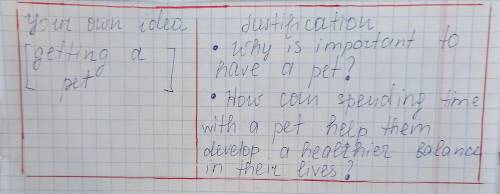 Your own idea
[getting a
pet]
Justification
• Why is important to
have a pet?
• How can spending time
with a pet help them
develop a healthier balance
in their lives?